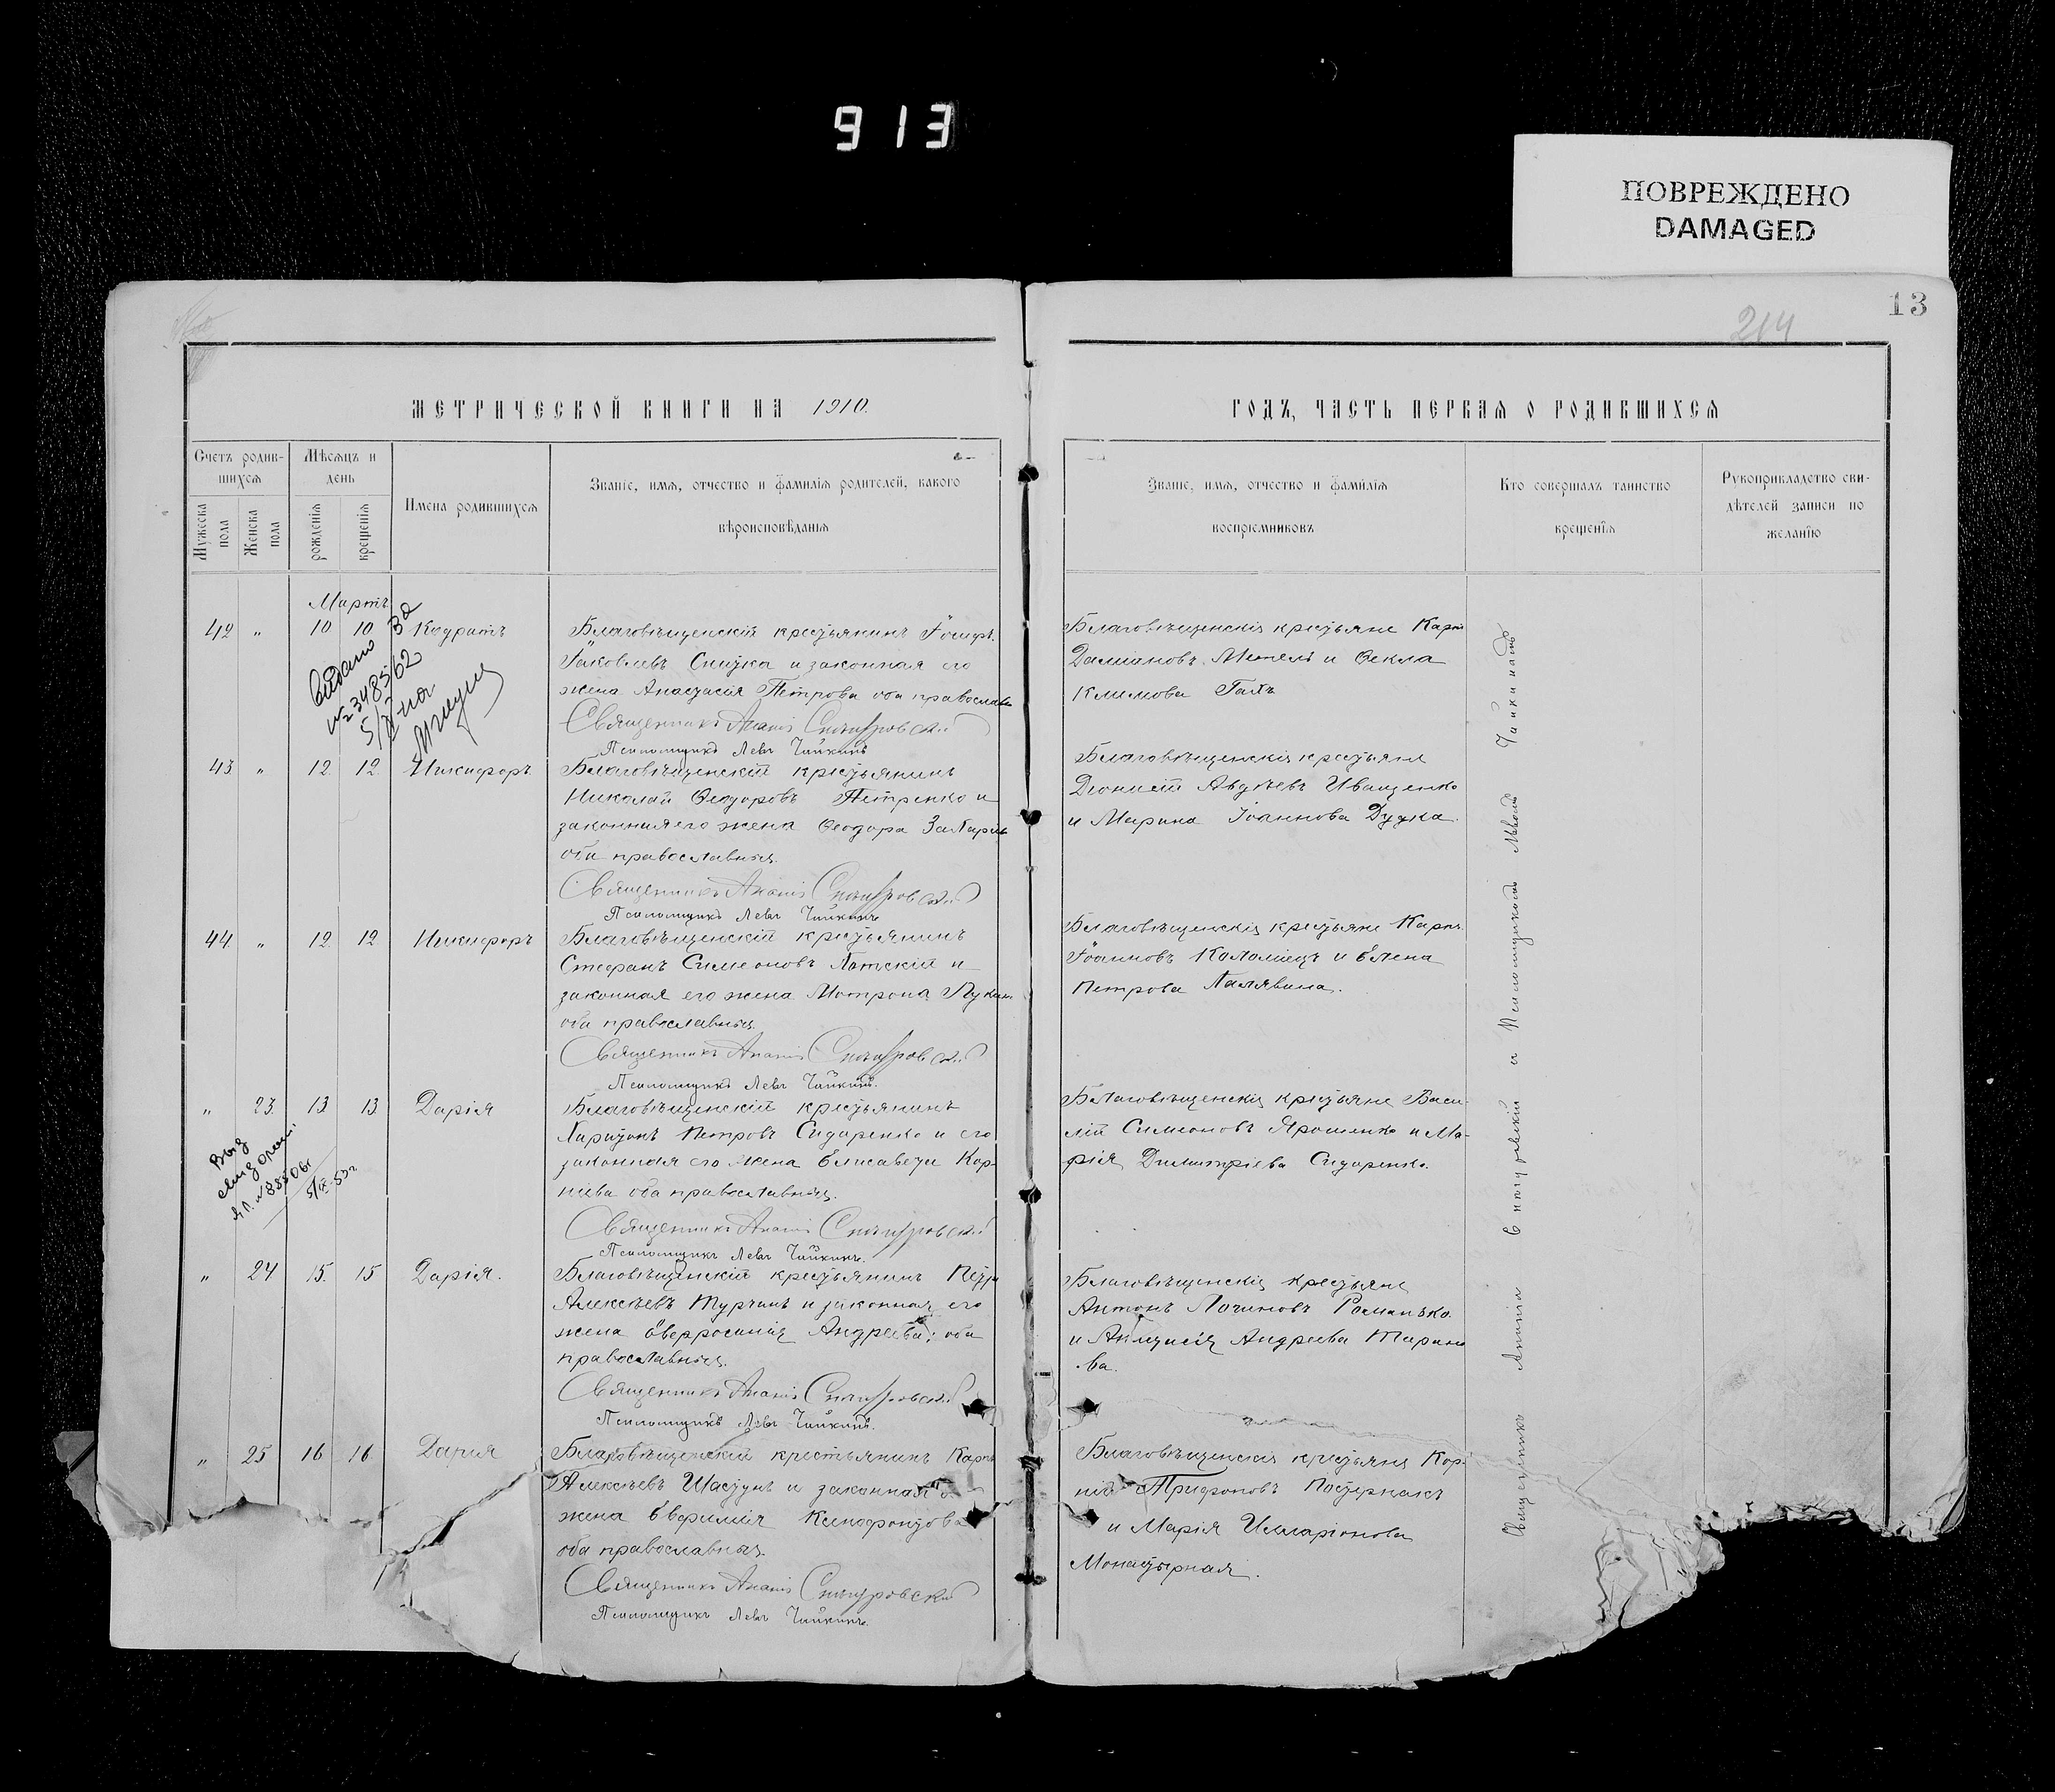 913
ПОВРЕЖДЕНО
DAMAGED
13
214
МЕТРИЧЕСКОЙ КНИГИ НА 1910.
ГОДЪ, ЧАСТЬ ПЕРВАЯ О РОДИВШИХСЯ
Счетъ родив-
шихся
Мужеска пола
Женска пола
Мѣсяцъ и
день
рожденія
крещенія
Имена родившихся
Званіе, имя, отчество и фамилія родителей, какого
вѣроисповѣданія
Званіе, имя, отчество и фамилія
воспріемниковъ
Кто совершалъ таинство
крещенія
Рукоприкладство сви-
дѣтелей записи по
желанію
Мартъ
42 " 10 10 Кодратъ
Благовѣщенскій крестьянинъ Іосифъ
Іаковлевъ Скицка и законная его
жена Анастасія Петрова оба православн
Священникъ Ананія
Псаломщикъ Левъ Чайкинъ
Благовѣщенскіе крестьяне Карп
Даміановъ Метель и Ѳекла
Климова Гаякъ
Видано
№ 348562
43 " 12. 12. Никифоръ
Благовѣщенскій крестьянинъ
Николай Ѳеодоровъ Петренко и
законная его жена Ѳеодора Захаріев
оба православные.
Священникъ Ананія
Псаломщикъ Левъ Чайкинъ
Благовѣщенскіе крестьяне
Діонисій Авдѣевъ Иващенко
и Марина Іоаннова Дудка.
44 " 12 12 Никифоръ
Благовѣщенскій крестьянинъ
Стефанъ Симеоновъ Латскій и
законная его жена Мотрона Лукин
оба православные.
Священникъ Ананія
Псаломщикъ Левъ Чайкинъ.
Благовѣщенскіе крестьяне Карпъ
Іоанновъ Коломіецъ и Елена
Петрова Палявина.
" 23. 13 13 Дарія
Благовѣщенскій крестьянинъ
Харитонъ Петровъ Сидоренко и его
законная его жена Елисавета Кор-
ніева оба православные.
Священникъ Ананія
Псаломщикъ Левъ Чайкинъ.
Благовѣщенскіе крестьяне Васи-
лій Симеоновъ Ярошенко и Ма-
рія Димитріева Сидоренко.
" 24 15. 15 Дарія.
Благовѣщенскій крестьянинъ Петръ
Алексѣевъ Турчинъ и законная его
жена Евфросинія Андреева; оба
православные.
Священникъ Ананія
Псаломщикъ Левъ Чайкинъ.
Благовѣщенскіе крестьяне
Антонъ Логиновъ Романько
и Анастасія Андреева Марино
ва.
" 25 16 16 Дарія
Благовѣщенскій крестьянинъ Карпъ
Алексѣевъ Шастунъ и законная
жена Евфимія Ксенофонтова
оба православные.
Священникъ Ананія
Псаломщикъ Левъ Чайкинъ.
Благовѣщенскіе крестьяне Кор-
ній Трифоновъ Пастернакъ
и Марія Илларіонова
Монастырная.
Священникъ Ананія и Псаломщикомъ Львомъ Чайкинымъ